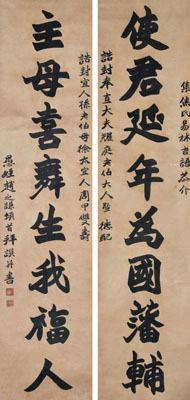 集焦氏易林古語恭介
使君延年為國藩輔
誥封奉直大夫耀庭老伯大人暨德配
誥封宜人孫老伯母徐太宜人周甲雙壽
主母喜舞生我福人
愚姪趙之謙頓首拜譔并書